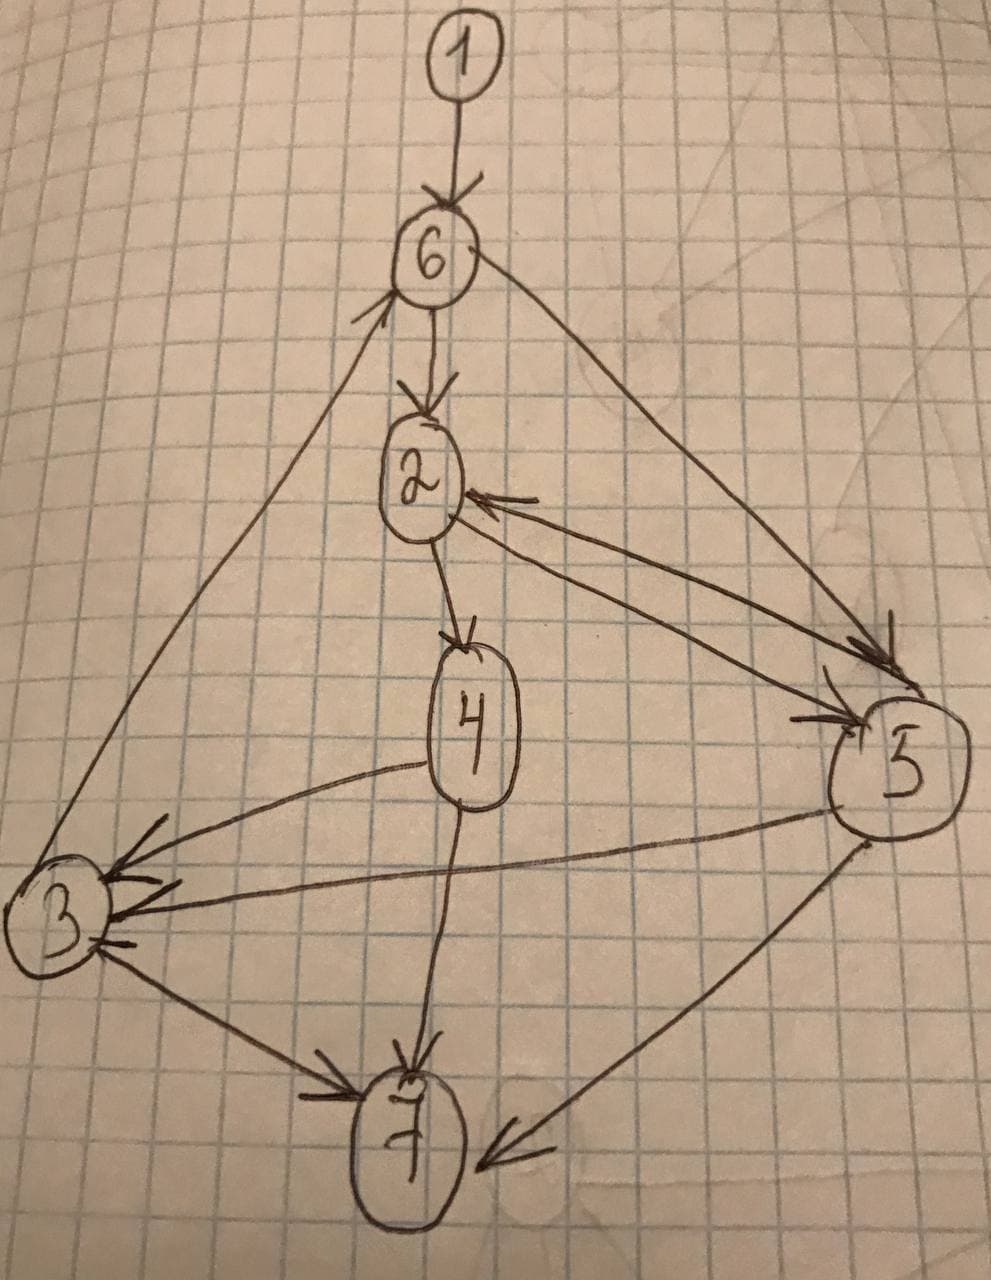 1
6
2
4
5
3
7